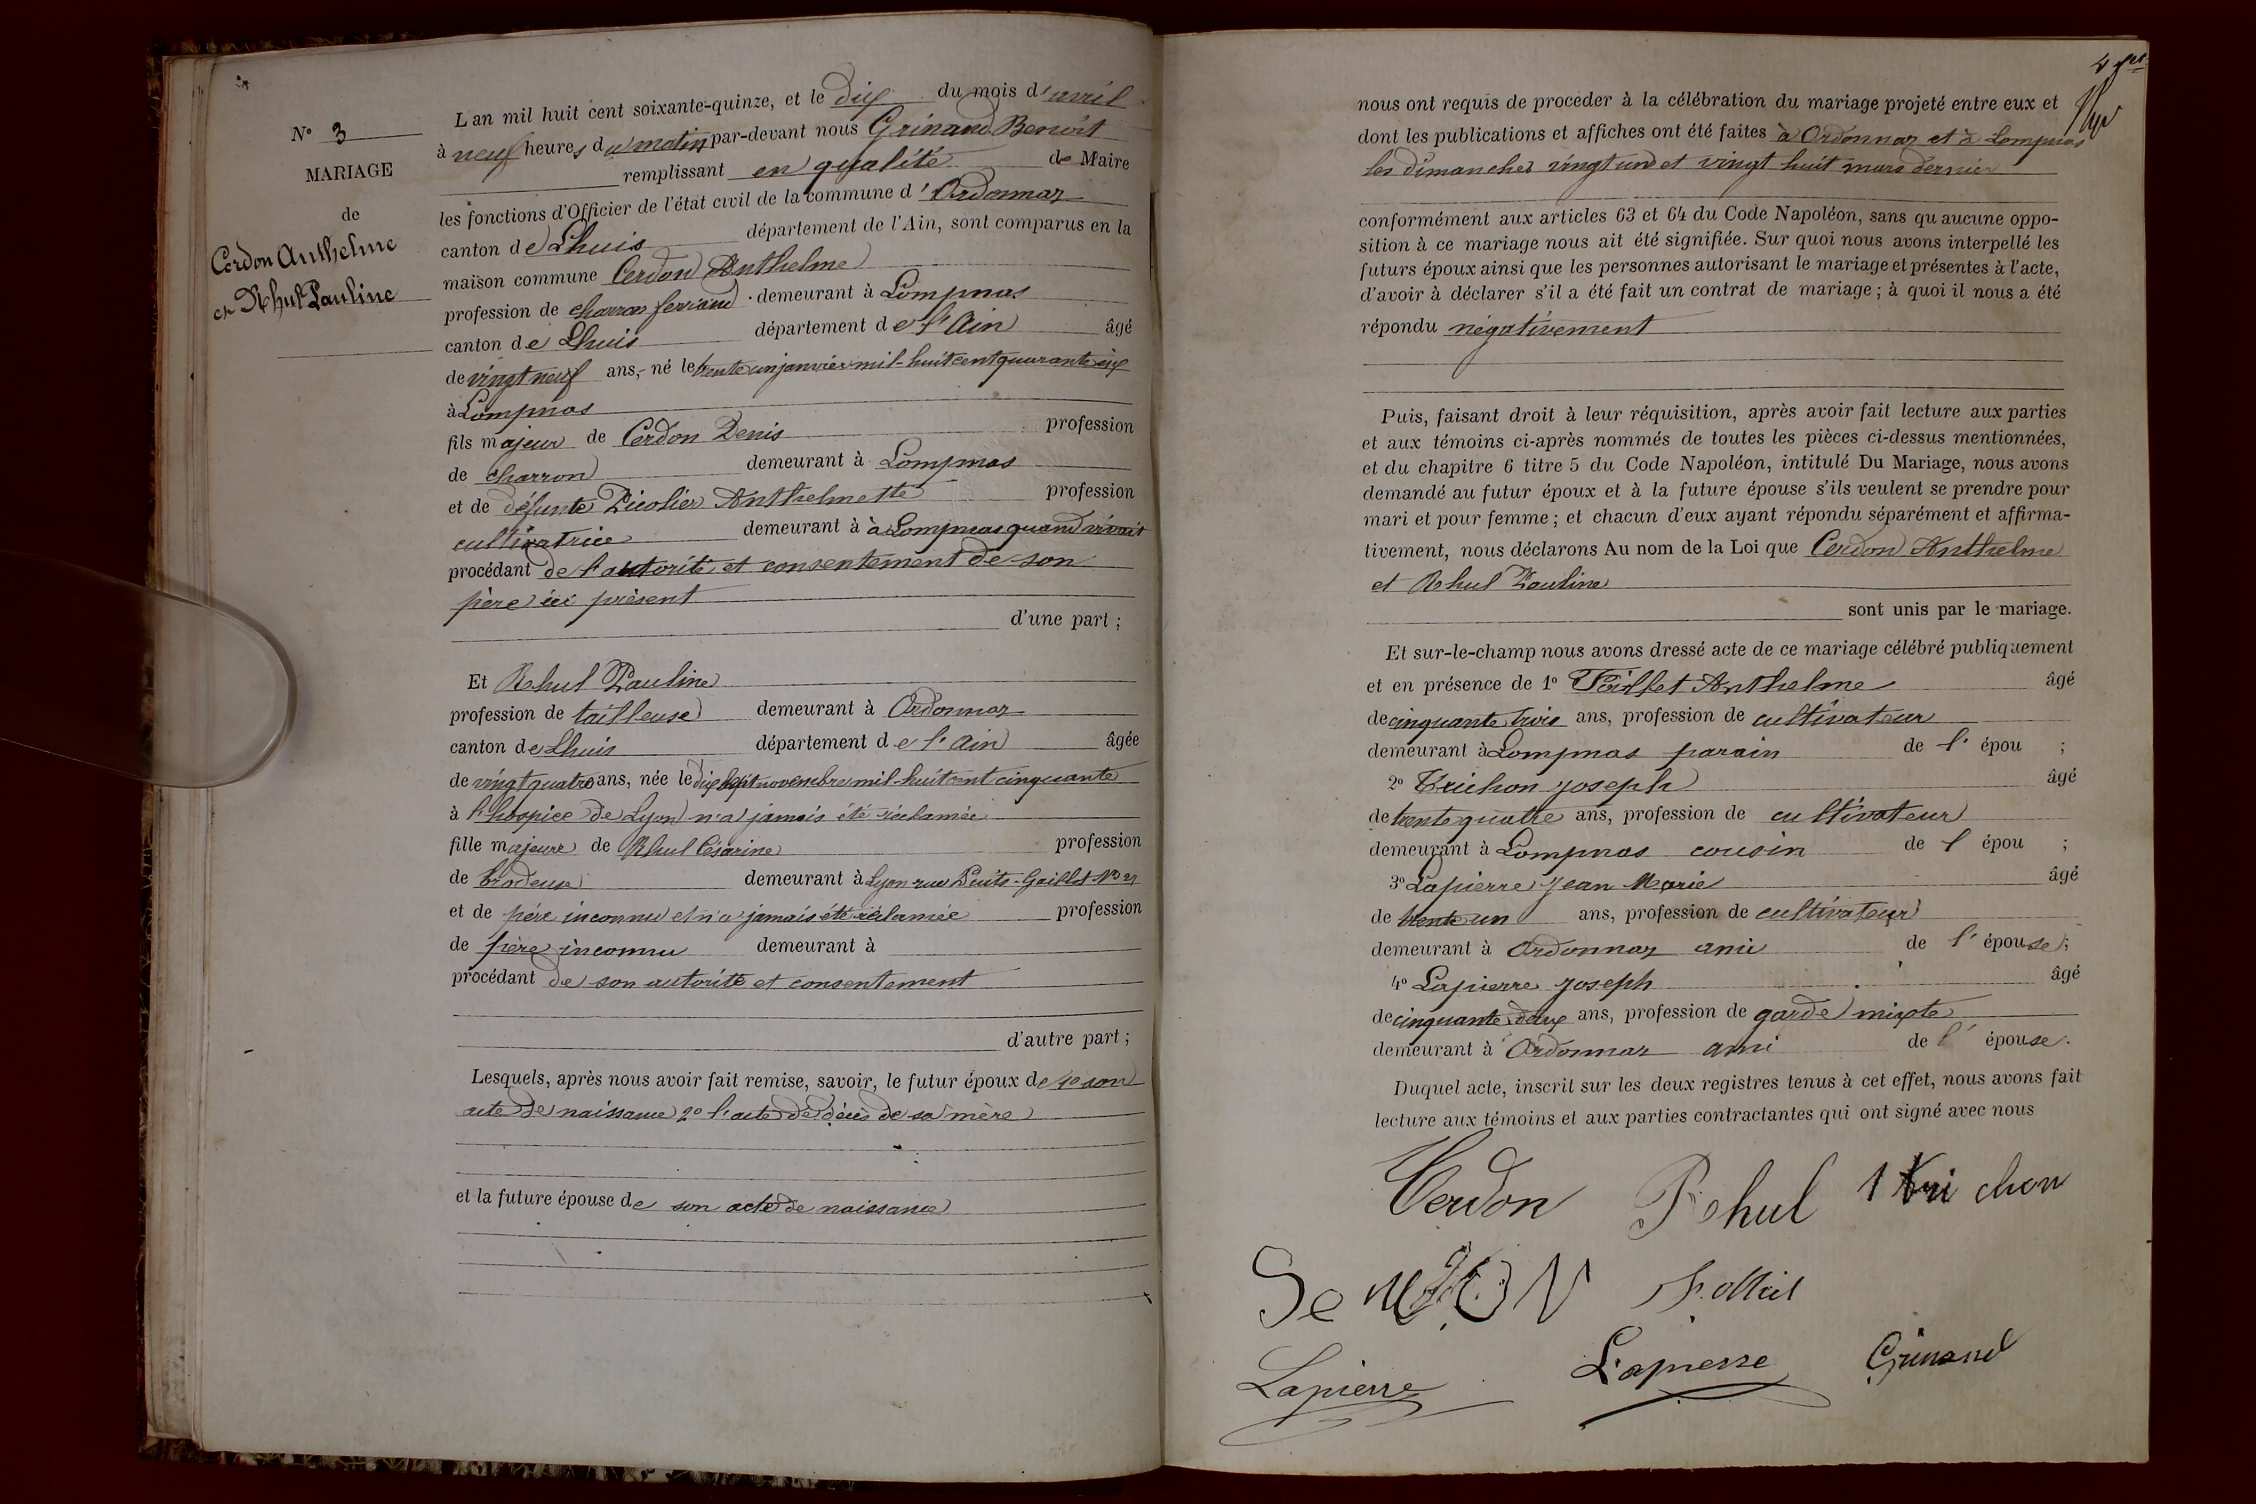 N° 3
MARIAGE
de
Cerdon Anthelme
et Rhul Pauline
L'an mil huit cent soixante-quinze, et le dix du mois d'avril
à neuf heures du matin par-devant nous Grinand Benoit
remplissant en qualité de Maire
les fonctions d'Officier de l'état civil de la commune d'Ordonnaz
canton de Lhuis département de l'Ain, sont comparus en la
maison commune Cerdon Anthelme
profession de charron ferrand demeurant à Lompnas
canton de Lhuis département de l'Ain âgé
de vingt neuf ans, né le trente un janvier mil-huit cent quarante six
à Lompnas
fils majeur de Cerdon Denis profession
de charron demeurant à Lompnas
et de défunte Picolier Anthelmette profession
cultivatrice demeurant à à Lompnas quand vivait
procédant de l'autorité et consentement de son
père ici présent
d'une part ;
Et Rhul Pauline
profession de tailleuse demeurant à Ordonnaz
canton de Lhuis département de l'Ain âgée
de vingt quatre ans, née le dix sept novembre mil-huit cent cinquante
à l'hospice de Lyon n'a jamais été réclamée
fille majeure de Rhul Césarine profession
de brodeuse demeurant à Lyon rue Puits-Gaillot N° 21
et de père inconnu et n'a jamais été réclamée profession
de père inconnu demeurant à
procédant de son autorité et consentement
d'autre part ;
Lesquels, après nous avoir fait remise, savoir, le futur époux de 1° son
acte de naissance 2° l'acte de décès de sa mère
et la future épouse de son acte de naissance
nous ont requis de procéder à la célébration du mariage projeté entre eux et
dont les publications et affiches ont été faites à Ordonnaz et à Lompnas
les dimanches vingt un et vingt huit mars dernier
conformément aux articles 63 et 64 du Code Napoléon, sans qu'aucune oppo-
sition à ce mariage nous ait été signifiée. Sur quoi nous avons interpellé les
futurs époux ainsi que les personnes autorisant le mariage et présentes à l'acte,
d'avoir à déclarer s'il a été fait un contrat de mariage ; à quoi il nous a été
répondu négativement
Puis, faisant droit à leur réquisition, après avoir fait lecture aux parties
et aux témoins ci-après nommés de toutes les pièces ci-dessus mentionnées,
et du chapitre 6 titre 5 du Code Napoléon, intitulé Du Mariage, nous avons
demandé au futur époux et à la future épouse s'ils veulent se prendre pour
mari et pour femme ; et chacun d'eux ayant répondu séparément et affirma-
tivement, nous déclarons Au nom de la Loi que Cerdon Anthelme
et Rhul Pauline
sont unis par le mariage.
Et sur-le-champ nous avons dressé acte de ce mariage célébré publiquement
et en présence de 1° Anthelme âgé
de cinquante trois ans, profession de cultivateur
demeurant à Lompnas parain de l' épou ;
2° Trichon Joseph âgé
de trente quatre ans, profession de cultivateur
demeurant à Lompnas cousin de l épou ;
3° Lapierre Jean Marie âgé
de trente un ans, profession de cultivateur
demeurant à Ordonnaz ami de l' épouse ;
4° Lapierre Joseph âgé
de cinquante deux ans, profession de garde mixte
demeurant à Ordonnaz ami de l' épouse.
Duquel acte, inscrit sur les deux registres tenus à cet effet, nous avons fait
lecture aux témoins et aux parties contractantes qui ont signé avec nous
Cerdon Rhul Trichon
Lapierre Lapierre Grinand